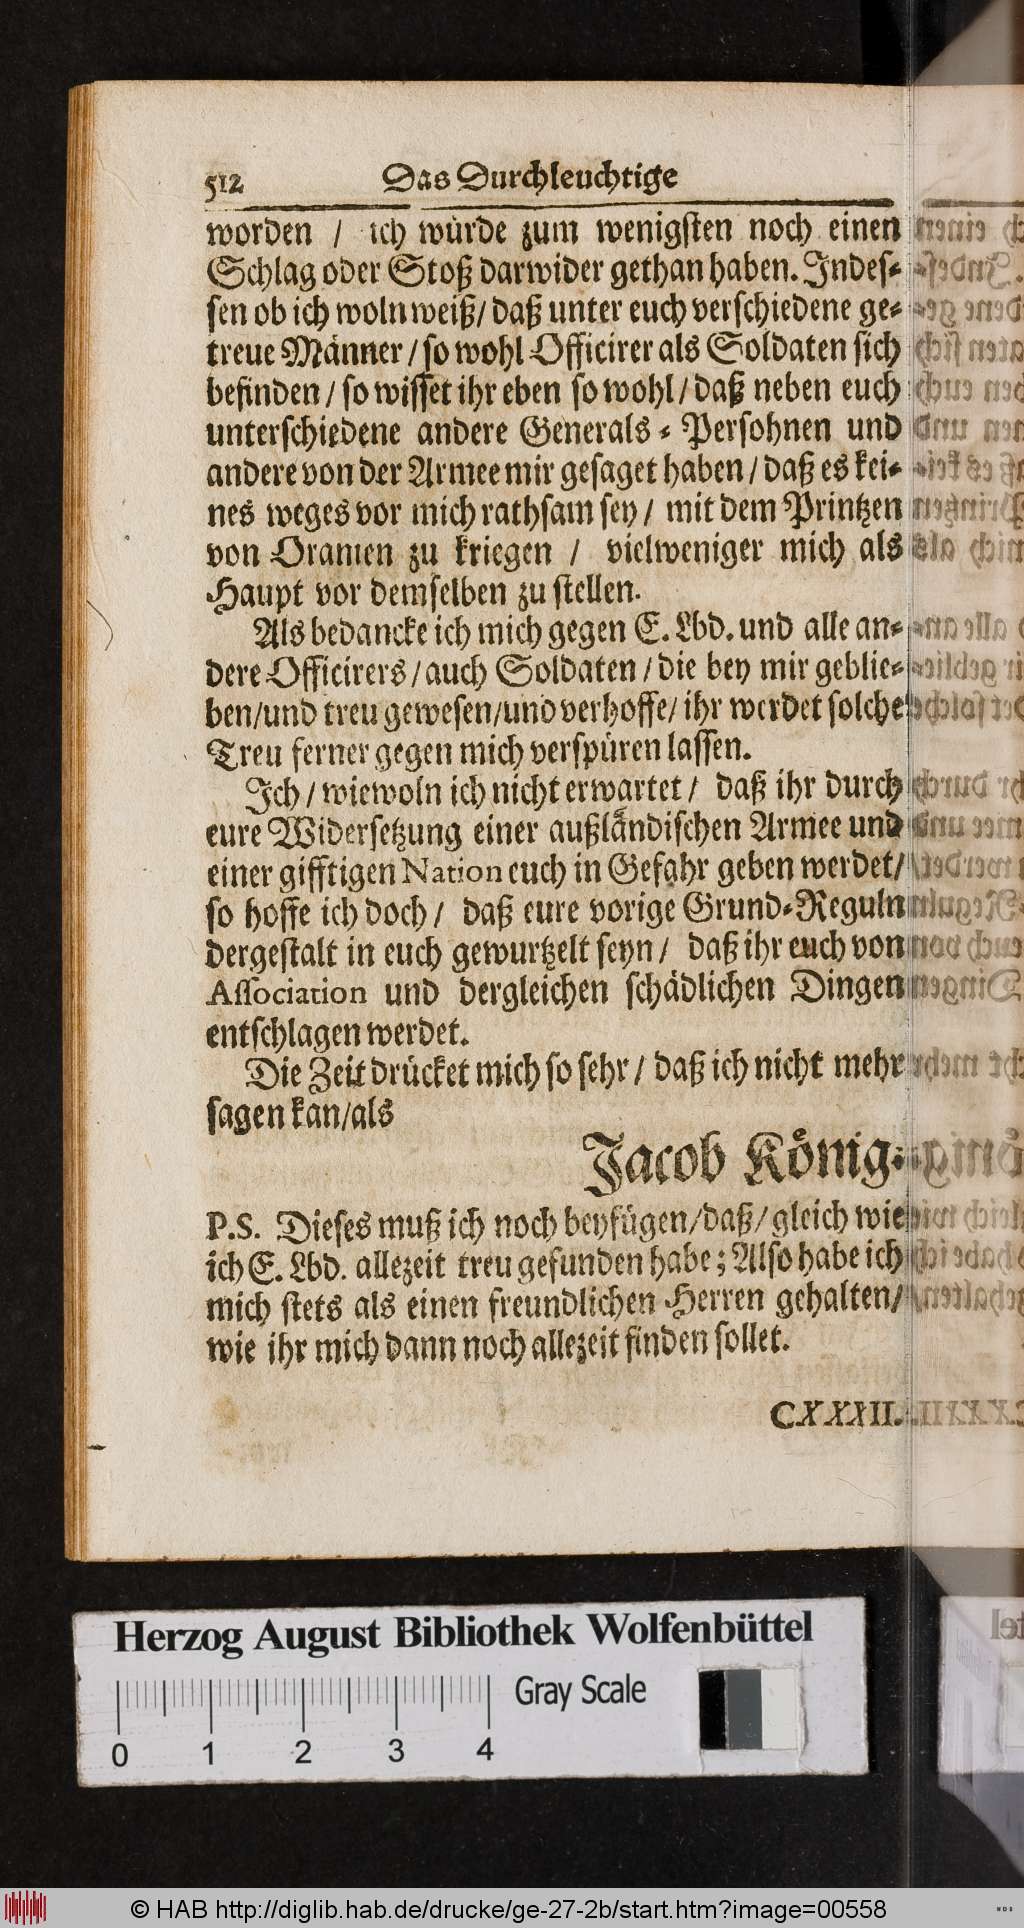 512 Das Durchleuchtige
worden / ich würde zum wenigsten noch einen
Schlag oder Stoß darwider gethan haben. Indes-
sen ob ich woln weiß / daß unter euch verschiedene ge-
treue Männer / so wohl Officirer als Soldaten sich
befinden / so wisset ihr eben so wohl / daß neben euch
unterschiedene andere Generals-Persohnen und
andere von der Armee mir gesaget haben / daß es kei-
nes weges vor mich rathsam sey / mit dem Printzen
von Oranien zu kriegen / vielweniger mich als
Haupt vor demselben zu stellen.
Als bedancke ich mich gegen E. Lbd. und alle an-
dere Officirers / auch Soldaten / die bey mir geblie-
ben/und treu gewesen/und verhoffe/ ihr werdet solche
Treu ferner gegen mich verspüren lassen.
Ich / wiewoln ich nicht erwartet / daß ihr durch
eure Widersetzung einer außländischen Armee und
einer gifftigen Nation euch in Gefahr geben werdet/
so hoffe ich doch / daß eure vorige Grund-Reguln
dergestalt in euch gewurtzelt seyn / daß ihr euch von
Association und dergleichen schädlichen Dingen
entschlagen werdet.
Die Zeit drücket mich so sehr / daß ich nicht mehr
sagen kan/als
Jacob König.
P.S. Dieses muß ich noch beyfügen/daß/gleich wie
ich E. Lbd. allezeit treu gefunden habe; Also habe ich
mich stets als einen freundlichen Herren gehalten/
wie ihr mich dann noch allezeit finden sollet.
CXXXII.
Herzog August Bibliothek Wolfenbüttel
Gray Scale
0 1 2 3 4
© HAB http://diglib.hab.de/drucke/ge-27-2b/start.htm?image=00558